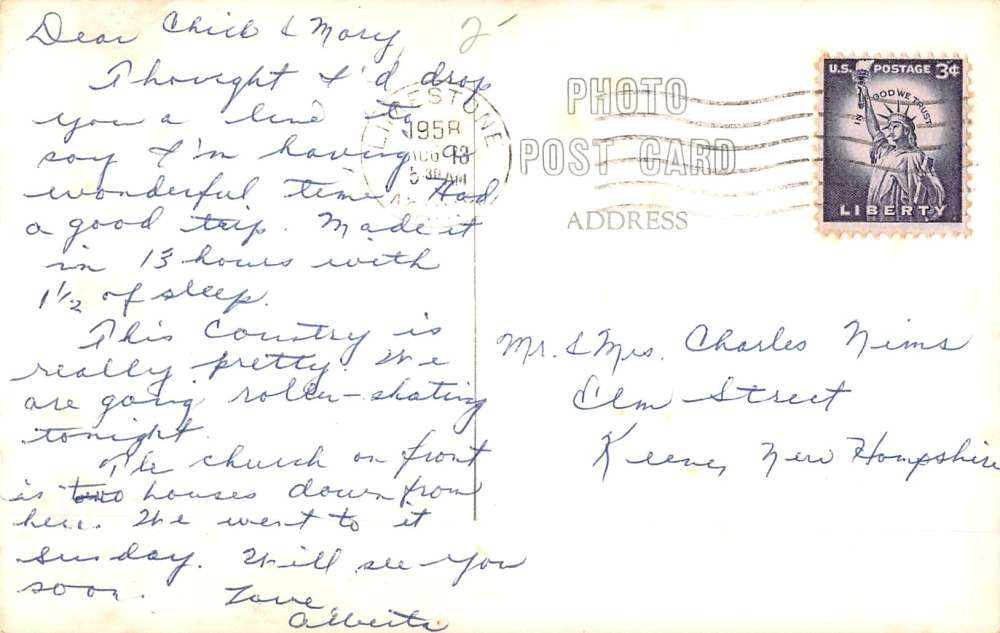 Dear Chick & Mary,
Thought I'd drop
you a line to
say I'm having a
wonderful time. Had
a good trip. Made it
in 13 hours with
1 1/2 of sleep.
This Country is
really pretty. We
are going roller-skating
tonight.
The church on front
is two houses down from
here. We went to it
Sunday. Will see you
soon. Love,
Alberta
2-
LIMESTONE
1958
AUG 13
5 30 AM
PHOTO
POST CARD
ADDRESS
U.S. POSTAGE 3¢
IN GOD WE TRUST
LIBERTY
Mr. & Mrs. Charles Nims
Elm Street
Keene, New Hampshire